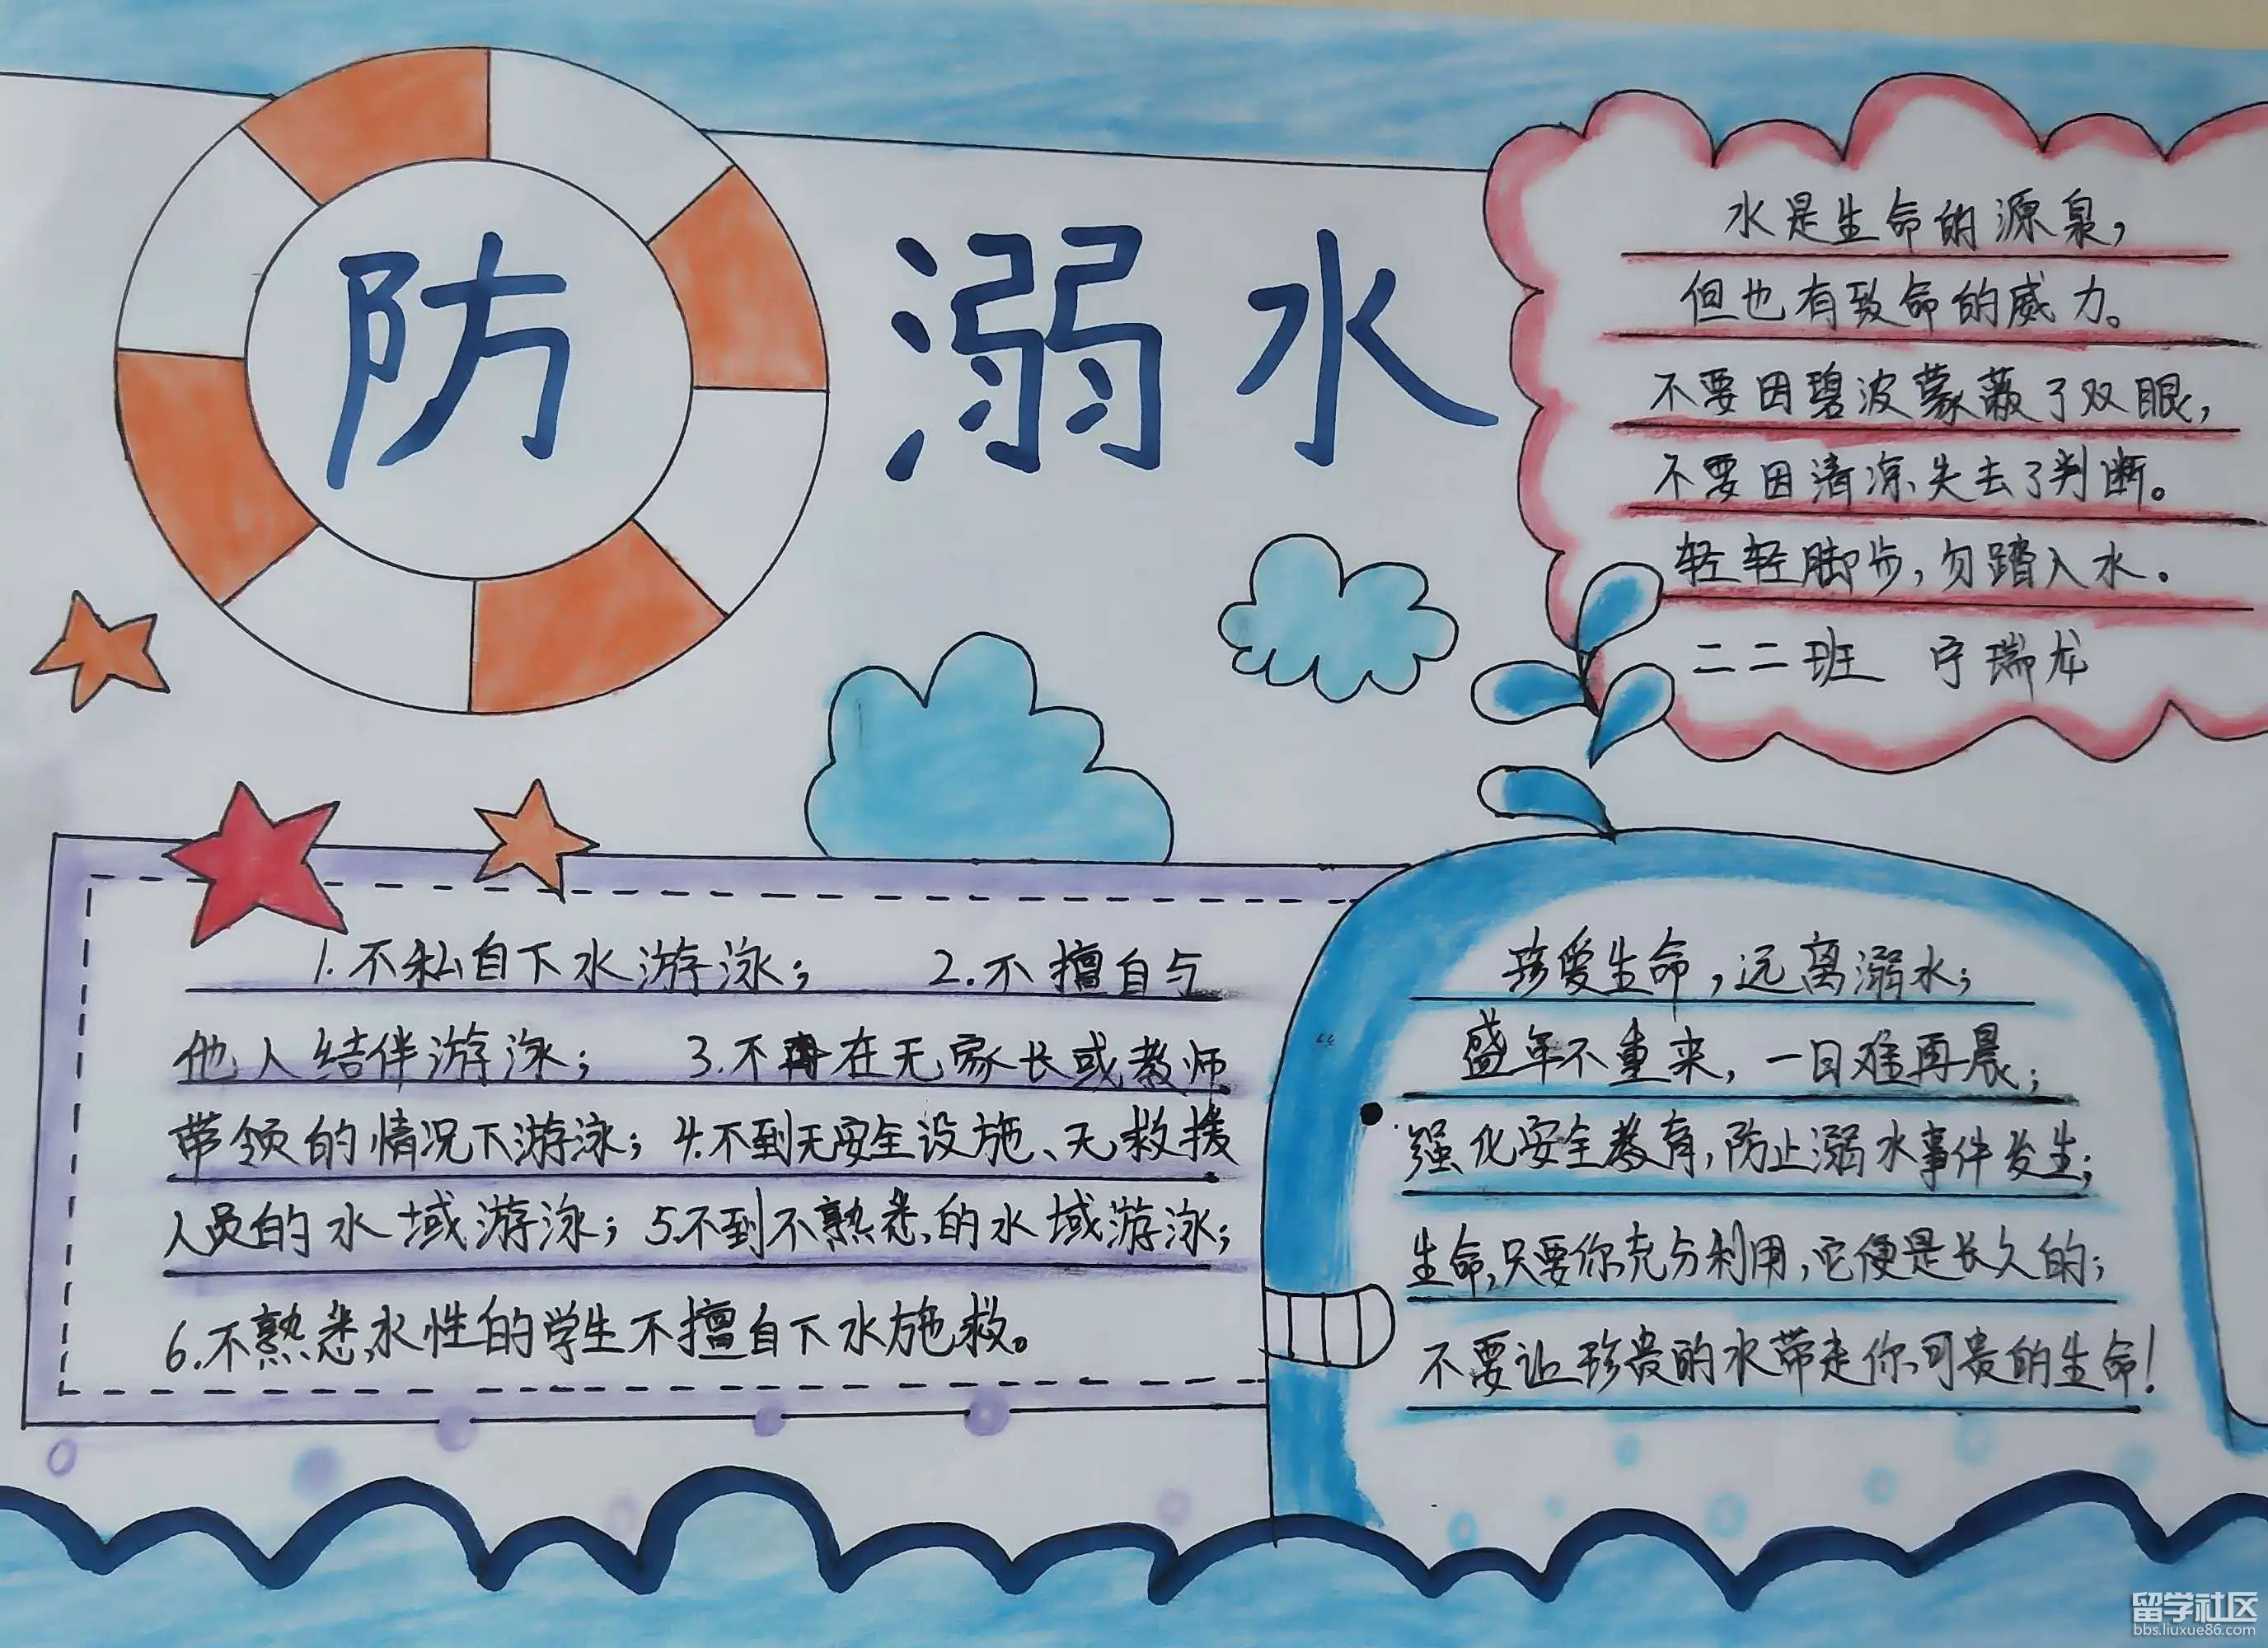 防溺水
水是生命的源泉，
但也有致命的威力。
不要因碧波蒙蔽了双眼，
不要因清凉失去了判断。
轻轻脚步，勿踏入水。
二二班 宁瑞龙
1.不私自下水游泳； 2.不擅自与
他人结伴游泳； 3.不在无家长或教师
带领的情况下游泳；4.不到无安全设施、无救援
人员的水域游泳；5.不到不熟悉的水域游泳；
6.不熟悉水性的学生不擅自下水施救。
珍爱生命，远离溺水；
盛年不重来，一日难再晨；
强化安全教育，防止溺水事件发生；
生命，只要你充分利用，它便是长久的；
不要让珍贵的水带走你可贵的生命！
留学社区
bbs.liuxue86.com